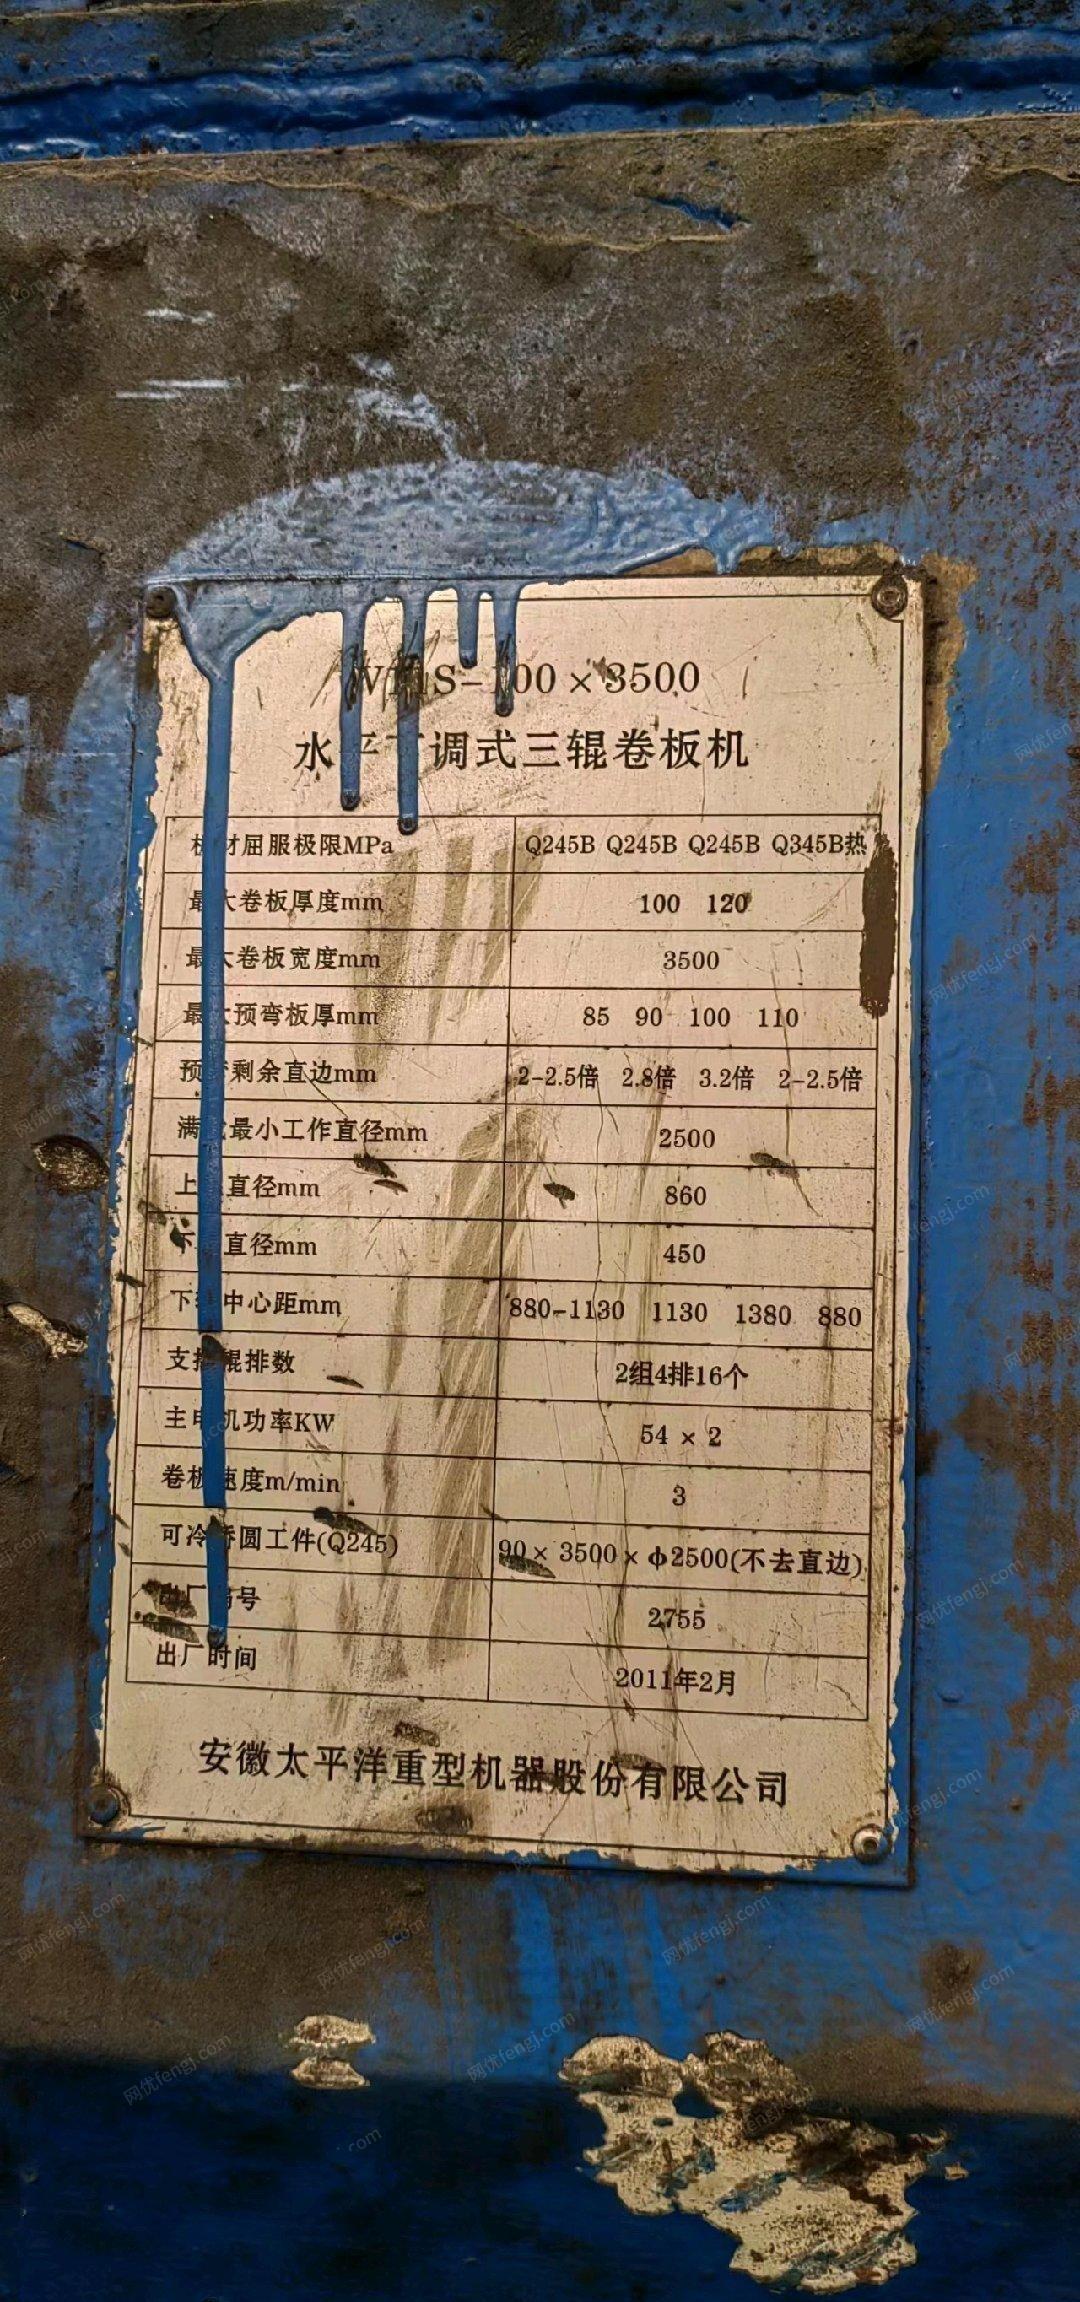 S-100×3500
水平 调式三辊卷板机
材屈服极限MPa Q245B Q245B Q245B Q345B热
最大卷板厚度mm 100 120
最大卷板宽度mm 3500
最大预弯板厚mm 85 90 100 110
预 剩余直边mm 2-2.5倍 2.8倍 3.2倍 2-2.5倍
满 最小工作直径mm 2500
上 直径mm 860
下 直径mm 450
下 中心距mm 880-1130 1130 1380 880
支 辊排数 2组4排16个
主电机功率KW 54×2
卷板速度m/min 3
可冷 圆工件(Q245) 90×3500×ф2500(不去直边)
出厂 号 2755
出厂时间 2011年2月
安徽太平洋重型机器股份有限公司
网优fengj.com